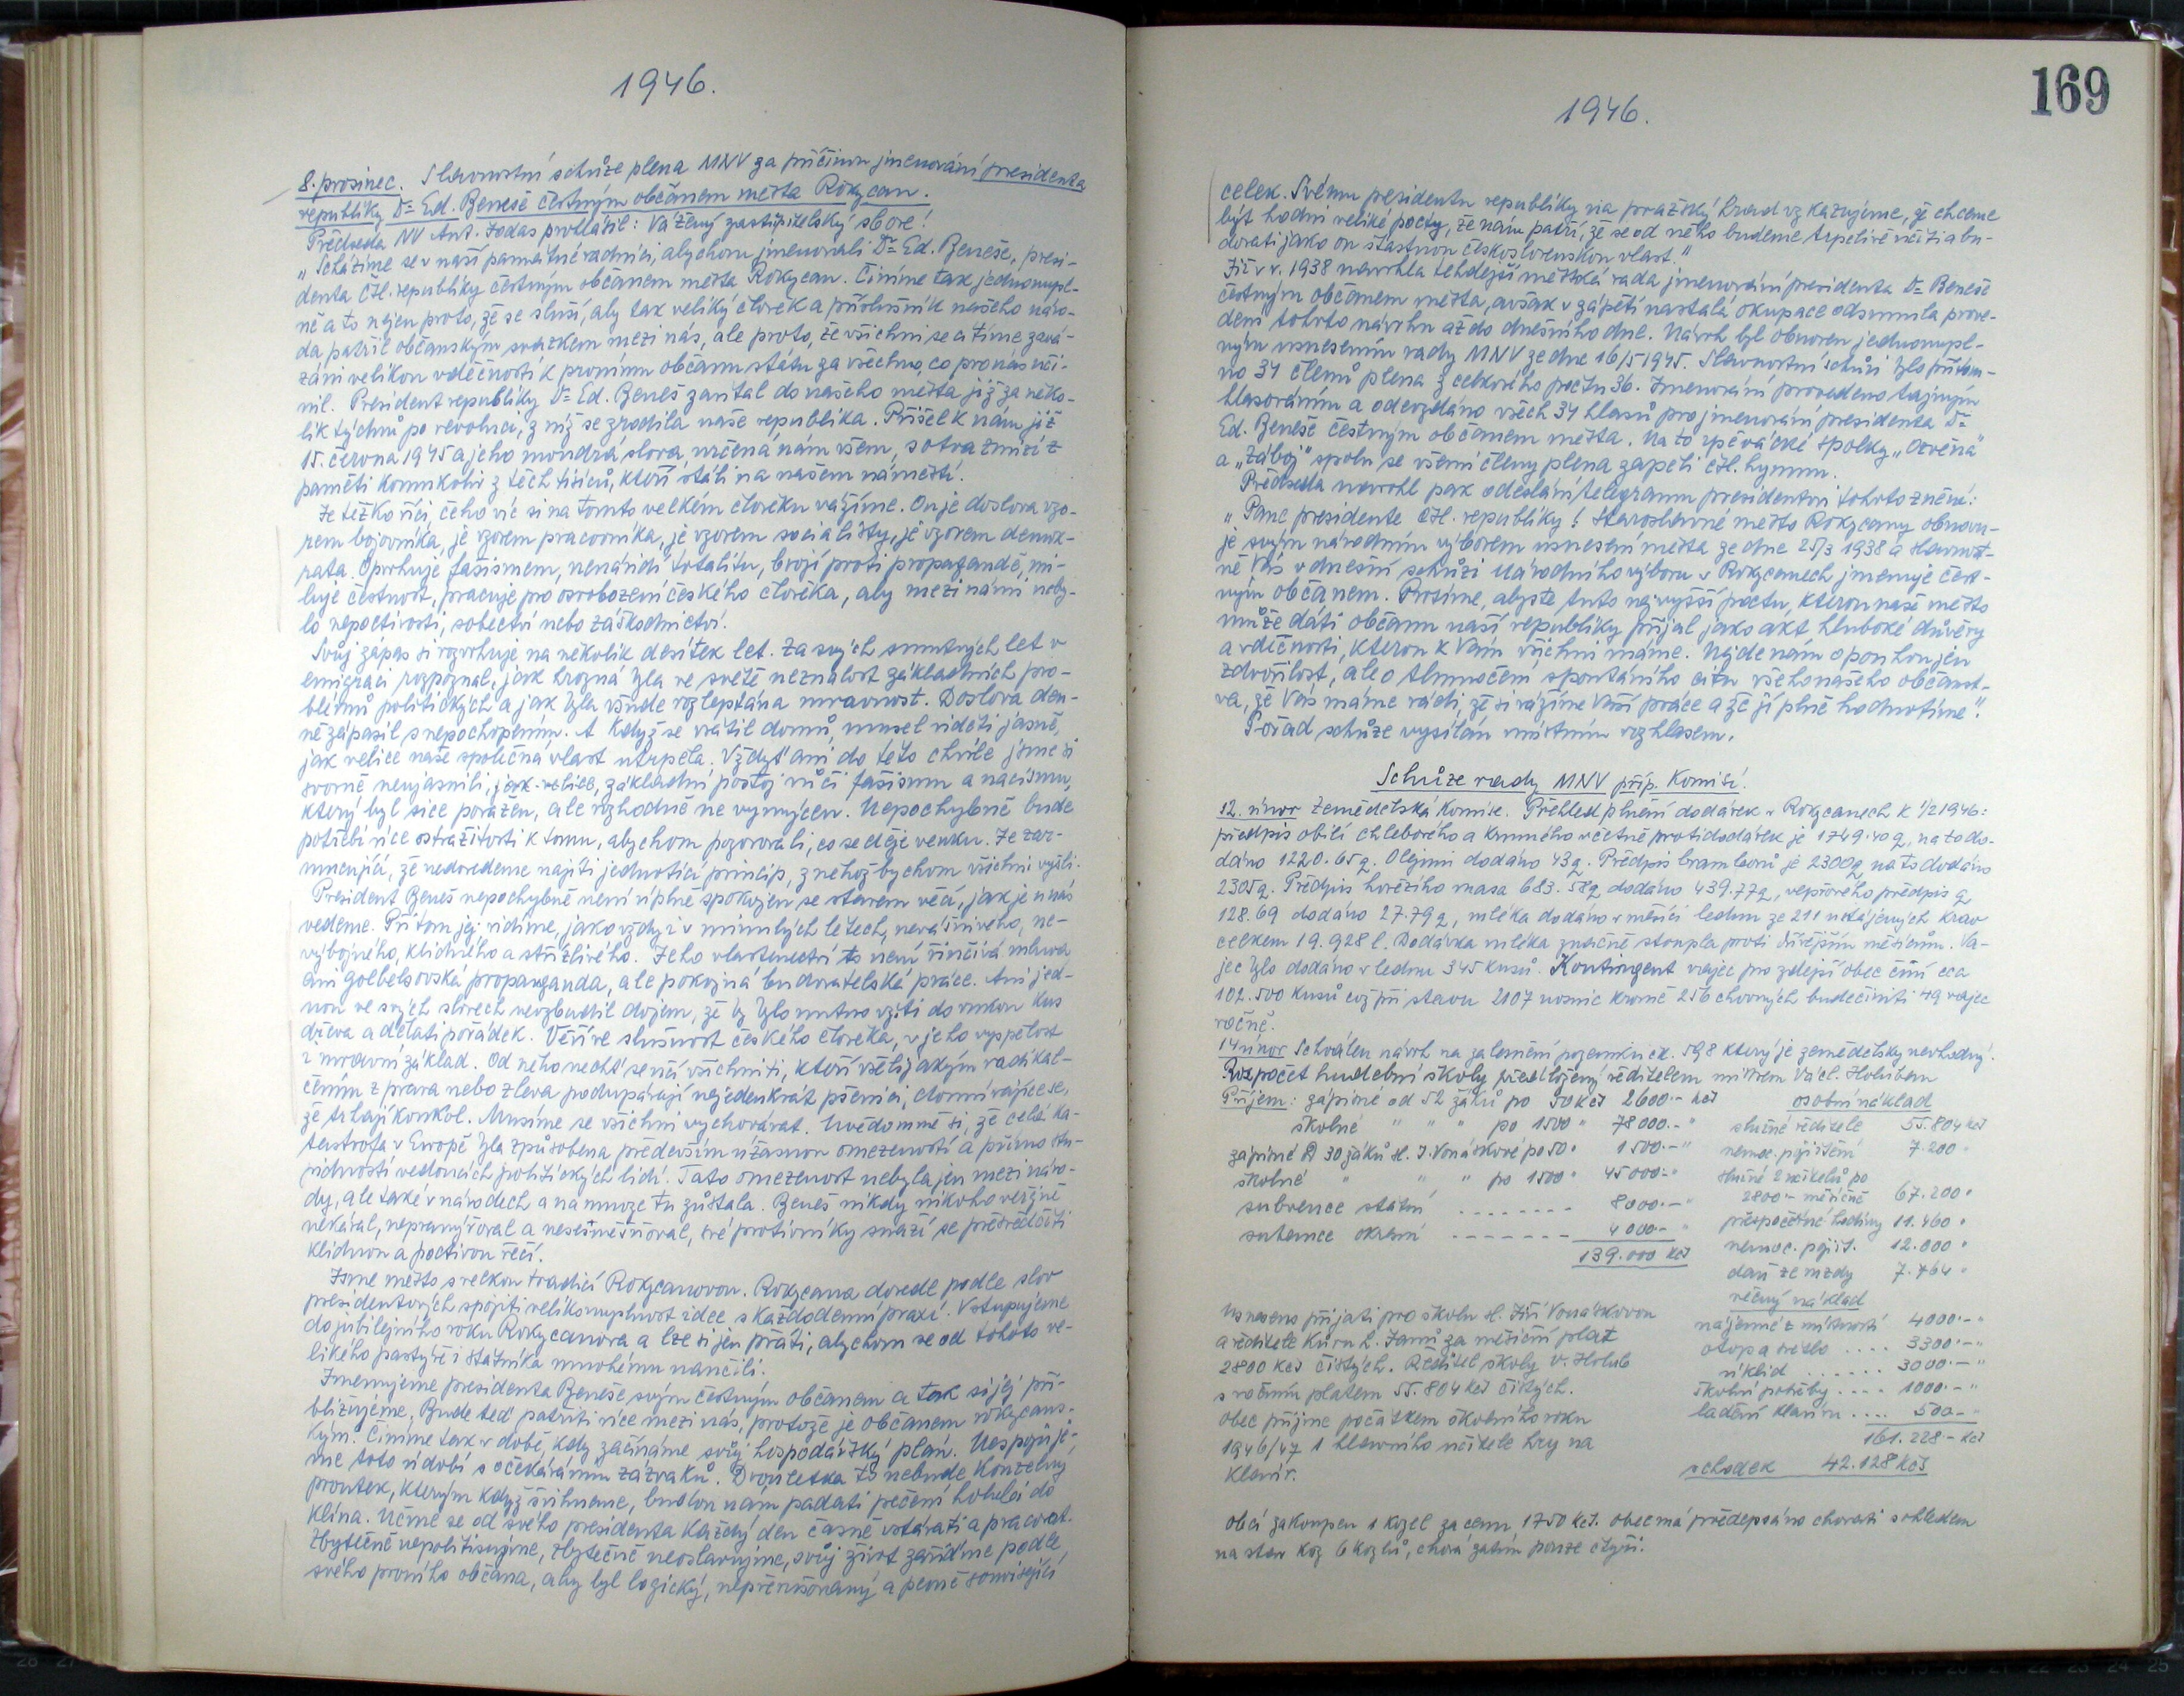 1946.
8. prosinec. Slavnostní schůze plena MNV za příčinou jmenování presidenta
republiky Dr Ed. Beneše čestným občanem města Rokycan.
Předseda NV Ant. Zodas prohlásil: Vážený zastupitelský sbore!
"Scházíme se v naší památné radnici, abychom jmenovali Dr Ed. Beneše, presi-
denta čsl. republiky čestným občanem města Rokycan. Činíme tak jednomysl-
ně a to nejen proto, že se sluší, aby tak veliký člověk a příslušník našeho náro-
da patřil občanským svazkem mezi nás, ale proto, že všichni se cítíme zavá-
záni velikou vděčností k prvnímu občanu státu za všechno, co pro nás uči-
nil. President republiky Dr Ed. Beneš zavítal do našeho města již za něko-
lik týdnů po revoluci, z níž se zrodila naše republika. Přišel k nám již
15. června 1945 a jeho moudrá slova, určená nám všem, sotva zmizí z
paměti komukoliv z těch tisíců, kteří stáli na našem náměstí.
Je těžko říci, čeho víc si na tomto velkém člověku vážíme. On je doslova vzo-
rem bojovníka, je vzorem pracovníka, je vzorem socialisty, je vzorem demok-
rata. Opovrhuje fašismem, nenávidí totalitu, brojí proti propagandě, mi-
luje čestnost, pracuje pro osvobození českého člověka, aby mezi námi neby-
lo nepoctivosti, sobectví nebo záškodnictví.
Svůj zápas si rozvrhuje na několik desítek let. Za svých smutných let v
emigraci rozpoznal, jak hrozná byla ve světě neznalost základních pro-
blémů politických a jak byla všude rozleptána mravnost. Doslova den-
ně zápasil s nepochopením. A když se vrátil domů, musel viděti jasně,
jak velice naše společná vlast utrpěla. Vždyť ani do této chvíle jsme si
svorně neujasnili, jak velice, základní postoj vůči fašismu a nacismu,
který byl sice poražen, ale rozhodně ne vymýcen. Nepochybně bude
potřebí více ostražitosti k tomu, abychom pozorovali, co se děje venku. Je zar-
mucující, že nedovedeme najíti jednotící princip, z něhož bychom všichni vyšli.
President Beneš nepochybně není úplně spokojen se stavem věcí, jak je u nás
vedeme. Při tom jej vidíme, jako vždy i v minulých letech, nevášnivého, ne-
výbojného, klidného a střízlivého. Jeho vlastnectví to není řinčivá mluva
ani goebelsovská propaganda, ale pokojná budovatelská práce. Ani jed-
nou ve svých slovech nevzbudil dojem, že by bylo nutno vzíti do rukou kus
dřeva a dělati pořádek. Věří ve slušnost českého člověka, v jeho vyspělost
i mravní základ. Od něho nechť se učí všichni ti, kteří všelijakým radikal-
čením z prava nebo z leva podupávají nejedenkrát pšenici, domnívajíce se,
že trhají koukol. Musíme se všichni vychovávat. Uvědomme si, že celá ka-
tastrofa v Evropě byla způsobena především úžasnou omezeností a přímo stu-
pidností vedoucích politických lidí. Tato omezenost nebyla jen mezi náro-
dy, ale také v národech a na mnoze tu zůstala. Beneš nikdy nikoho veřejně
nekáral, nepranýřoval a nesesměšňoval, své protivníky snaží se přesvědčiti
klidnou a poctivou řečí.
Jsme město s velkou tradicí Rokycanovou. Rokycana dovedl podle slov
presidentových spojiti velikomyslnost idee s každodenní praxí. Vstupujeme
do jubilejního roku Rokycanova a lze si jen přáti, abychom se od tohoto ve-
likého pastýře i státníka mnohému naučili.
Jmenujeme presidenta Beneše svým čestným občanem a tak si jej při-
bližujeme. Bude teď patřiti více mezi nás, protože je občanem rokycans-
kým. Činíme tak v době, kdy začínáme svůj hospodářský plán. Nespojuje-
me toto údobí s očekáváním zázraků. Dvouletka to nebude kouzelný
proutek, kterým když švihneme, budou nám padati pečení holubi do
klína. Učme se od svého presidenta každý den časně vstávati a pracovat.
Zbytečně nepolitisujme, zbytečně neoslavujme, svůj život zařiďme podle
svého prvního občana, aby byl logický, nepřerušovaný a pevně související
169
1946.
celek. Svému presidentu republiky na pražský hrad vzkazujeme, že chceme
být hodni veliké pocty, že nám patří, že se od něho budeme trpělivě učiti a bu-
dovati jako on šťastnou československou vlast."
Již v r. 1938 navrhla tehdejší městská rada jmenování presidenta Dr Beneše
čestným občanem města, avšak v zápětí nastalá okupace odsunula prove-
dení tohoto návrhu až do dnešního dne. Návrh byl obnoven jednomysl-
ným usnesením rady MNV ze dne 16/5 1945. Slavnostní schůzi bylo přítom-
no 34 členů plena z celkového počtu 36. Jmenování provedeno tajným
hlasováním a odevzdáno všech 34 hlasů pro jmenování presidenta Dr
Ed. Beneše čestným občanem města. Na to zpěvácké spolky "Ozvěna"
a "Záboj" spolu se všemi členy plena zapěli čsl. hymnu.
Předseda navrhl pak odeslání telegramu presidentovi tohoto znění:
"Pane presidente čsl. republiky! Staroslavné město Rokycany obnovu-
je svým národním výborem usnesení města ze dne 25/3 1938 a slavnost-
ně Vás v dnešní schůzi Národního výboru v Rokycanech jmenuje čest-
ným občanem. Prosíme, abyste tuto nejvyšší poctu, kterou naše město
může dáti občanu naší republiky přijal jako akt hluboké důvěry
a vděčnosti, kterou k Vám všichni máme. Nejde nám o pouhou jen
zdvořilost, ale o tlumočení spontáního citu všeho našeho občanst-
va, že Vás máme rádi, že si vážíme Vaší práce a že ji plně hodnotíme".
Pořad schůze vysílán místním rozhlasem.
Schůze rady MNV příp. Komisí.
12. únor Zemědělská komise. Přehled plnění dodávek v Rokycanech k 1/2 1946:
předpis obilí chlebového a krmného včetně protidodávek je 1749.40 q, na to do-
dáno 1220.65 q. Olejnin dodáno 43 q. Předpis bramborů je 2300 q na to dodáno
2305 q. Předpis hovězího masa 683.58 q dodáno 439.77 q, vepřového předpis q
128.69 dodáno 27.79 q, mléka dodáno v měsíci lednu ze 211 netajených krav
celkem 19.928 l. Dodávka mléka značně stoupla proti dřívějším měsícům. Va-
jec bylo dodáno v lednu 345 kusů. Kontingent vajec pro zdejší obec činí cca
102.500 kusů což při stavu 2107 nosnic kromě 256 chovných bude činiti 49 vajec
ročně.
14 únor Schválen návrh na zalesnění pozemku čk. 598 který je zemědělsky nevhodný.
Rozpočet hudební školy předložený ředitelem mistrem Václ. Holubem
Příjem: zápisné od 52 žáků po 50 Kčs 2600.- Kčs
školné " " " po 1500 " 78000.- "
zápisné 30 žáků sl. J. Vonáskové po 50 " 1500.- "
školné " " " po 1500 " 45000.- "
subvence státní - - - - - - - - 8000.- "
subvence okresní - - - - - - - - 4000.- "
139.000 Kčs
osobní náklad
služné ředitele 55.804 Kčs
nemoc. pojištění 7.200 "
služné 2 učitelů po
2800.- měsíčně 67.200 "
přespočetné hodiny 11.460 "
nemoc. pojišt. 12.000 "
daň ze mzdy 7.764 "
věcný náklad
nájemné z místností 4000.- "
otop a světlo .... 3300.- "
úklid ...... 3000.- "
školní potřeby .... 1000.- "
ladění klavíru .... 500.- "
161.228 - Kčs
schodek 42.128 Kčs
Usneseno přijati pro školu sl. Jiří Vonáskovou
a ředitele kůru L. Janů za měsíční plat
2800 Kčs čistých. Ředitel školy V. Holub
s ročním platem 55.804 Kčs čistých.
Obec přijme počátkem školního roku
1946/47 1 hlavního učitele hry na
klavír.
Obcí zakoupen 1 kozel za cenu 1750 Kčs. Obec má předepsáno chovati s ohledem
na stav koz 6 kozlů, chová zatím pouze čtyři.